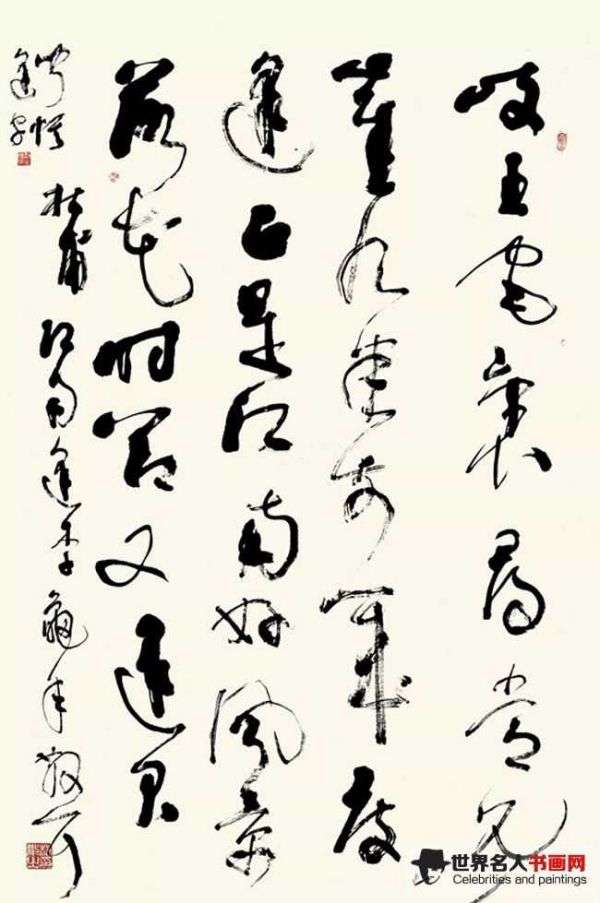 岐王宅裏尋常見
崔九堂前幾度
正是江南好風景
落花時節又逢君
杜甫江南逢李龜年
世界名人书画网
Celebrities and paintings